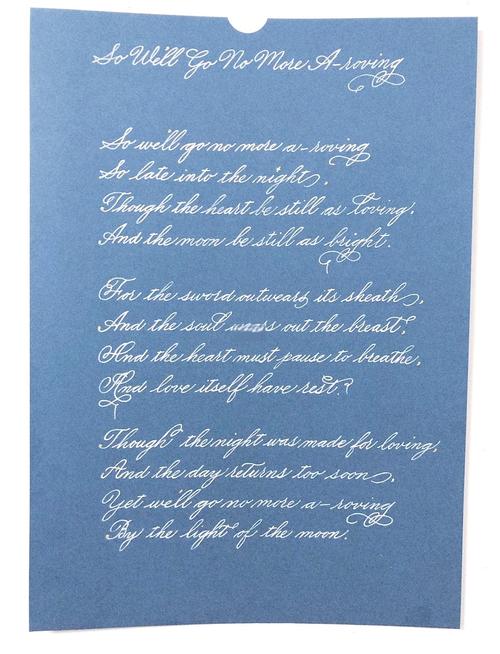 So We'll Go No More A-roving
So we'll go no more a-roving
So late into the night,
Though the heart be still as loving,
And the moon be still as bright.
For the sword outwears its sheath,
And the soul wears out the breast,
And the heart must pause to breathe,
And love itself have rest.
Though the night was made for loving,
And the day returns too soon,
Yet we'll go no more a-roving
By the light of the moon.